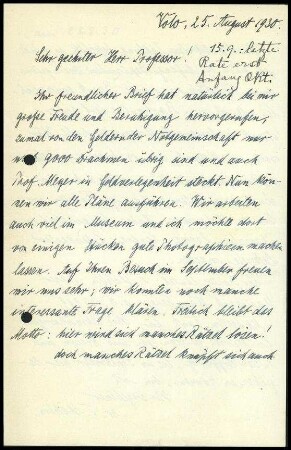 Volo, 25. August 1930.
Sehr geehrter Herr Professor!
15.9.: letzte
Rate erst
Anfang Okt.
Ihr freundlicher Brief hat natürlich bei mir
große Freude und Beruhigung hervorgerufen,
zumal von den Geldern der Notgemeinschaft nur
9000 Drachmen übrig sind und auch
Prof. Meyer in Geldverlegenheit steckt. Nun kön-
nen wir alle Pläne ausführen. Wir arbeiten
auch viel im Museum und ich möchte dort
von einigen Stücken gute Photographieen machen
lassen. Auf Ihren Besuch im September freuen
wir uns sehr; wir konnten noch manche
interessante Frage klären. Freilich bleibt das
Motto: hier wird sich manches Rätsel lösen!
doch manches Rätsel knüpft sich auch